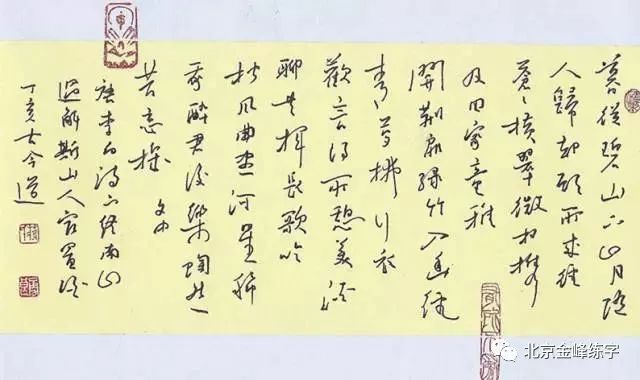 暮從碧山下山月隨
人歸却顧所來徑
蒼蒼橫翠微相攜
及田家童稚
開荆扉綠竹入幽徑
青蘿拂行衣
歡言得所憩美酒
聊共揮長歌吟
松風曲盡河星稀
我醉君復樂陶然
共忘機
唐李白詩下終南山
過斛斯山人宿置酒
丁亥古今道
北京金峰练字